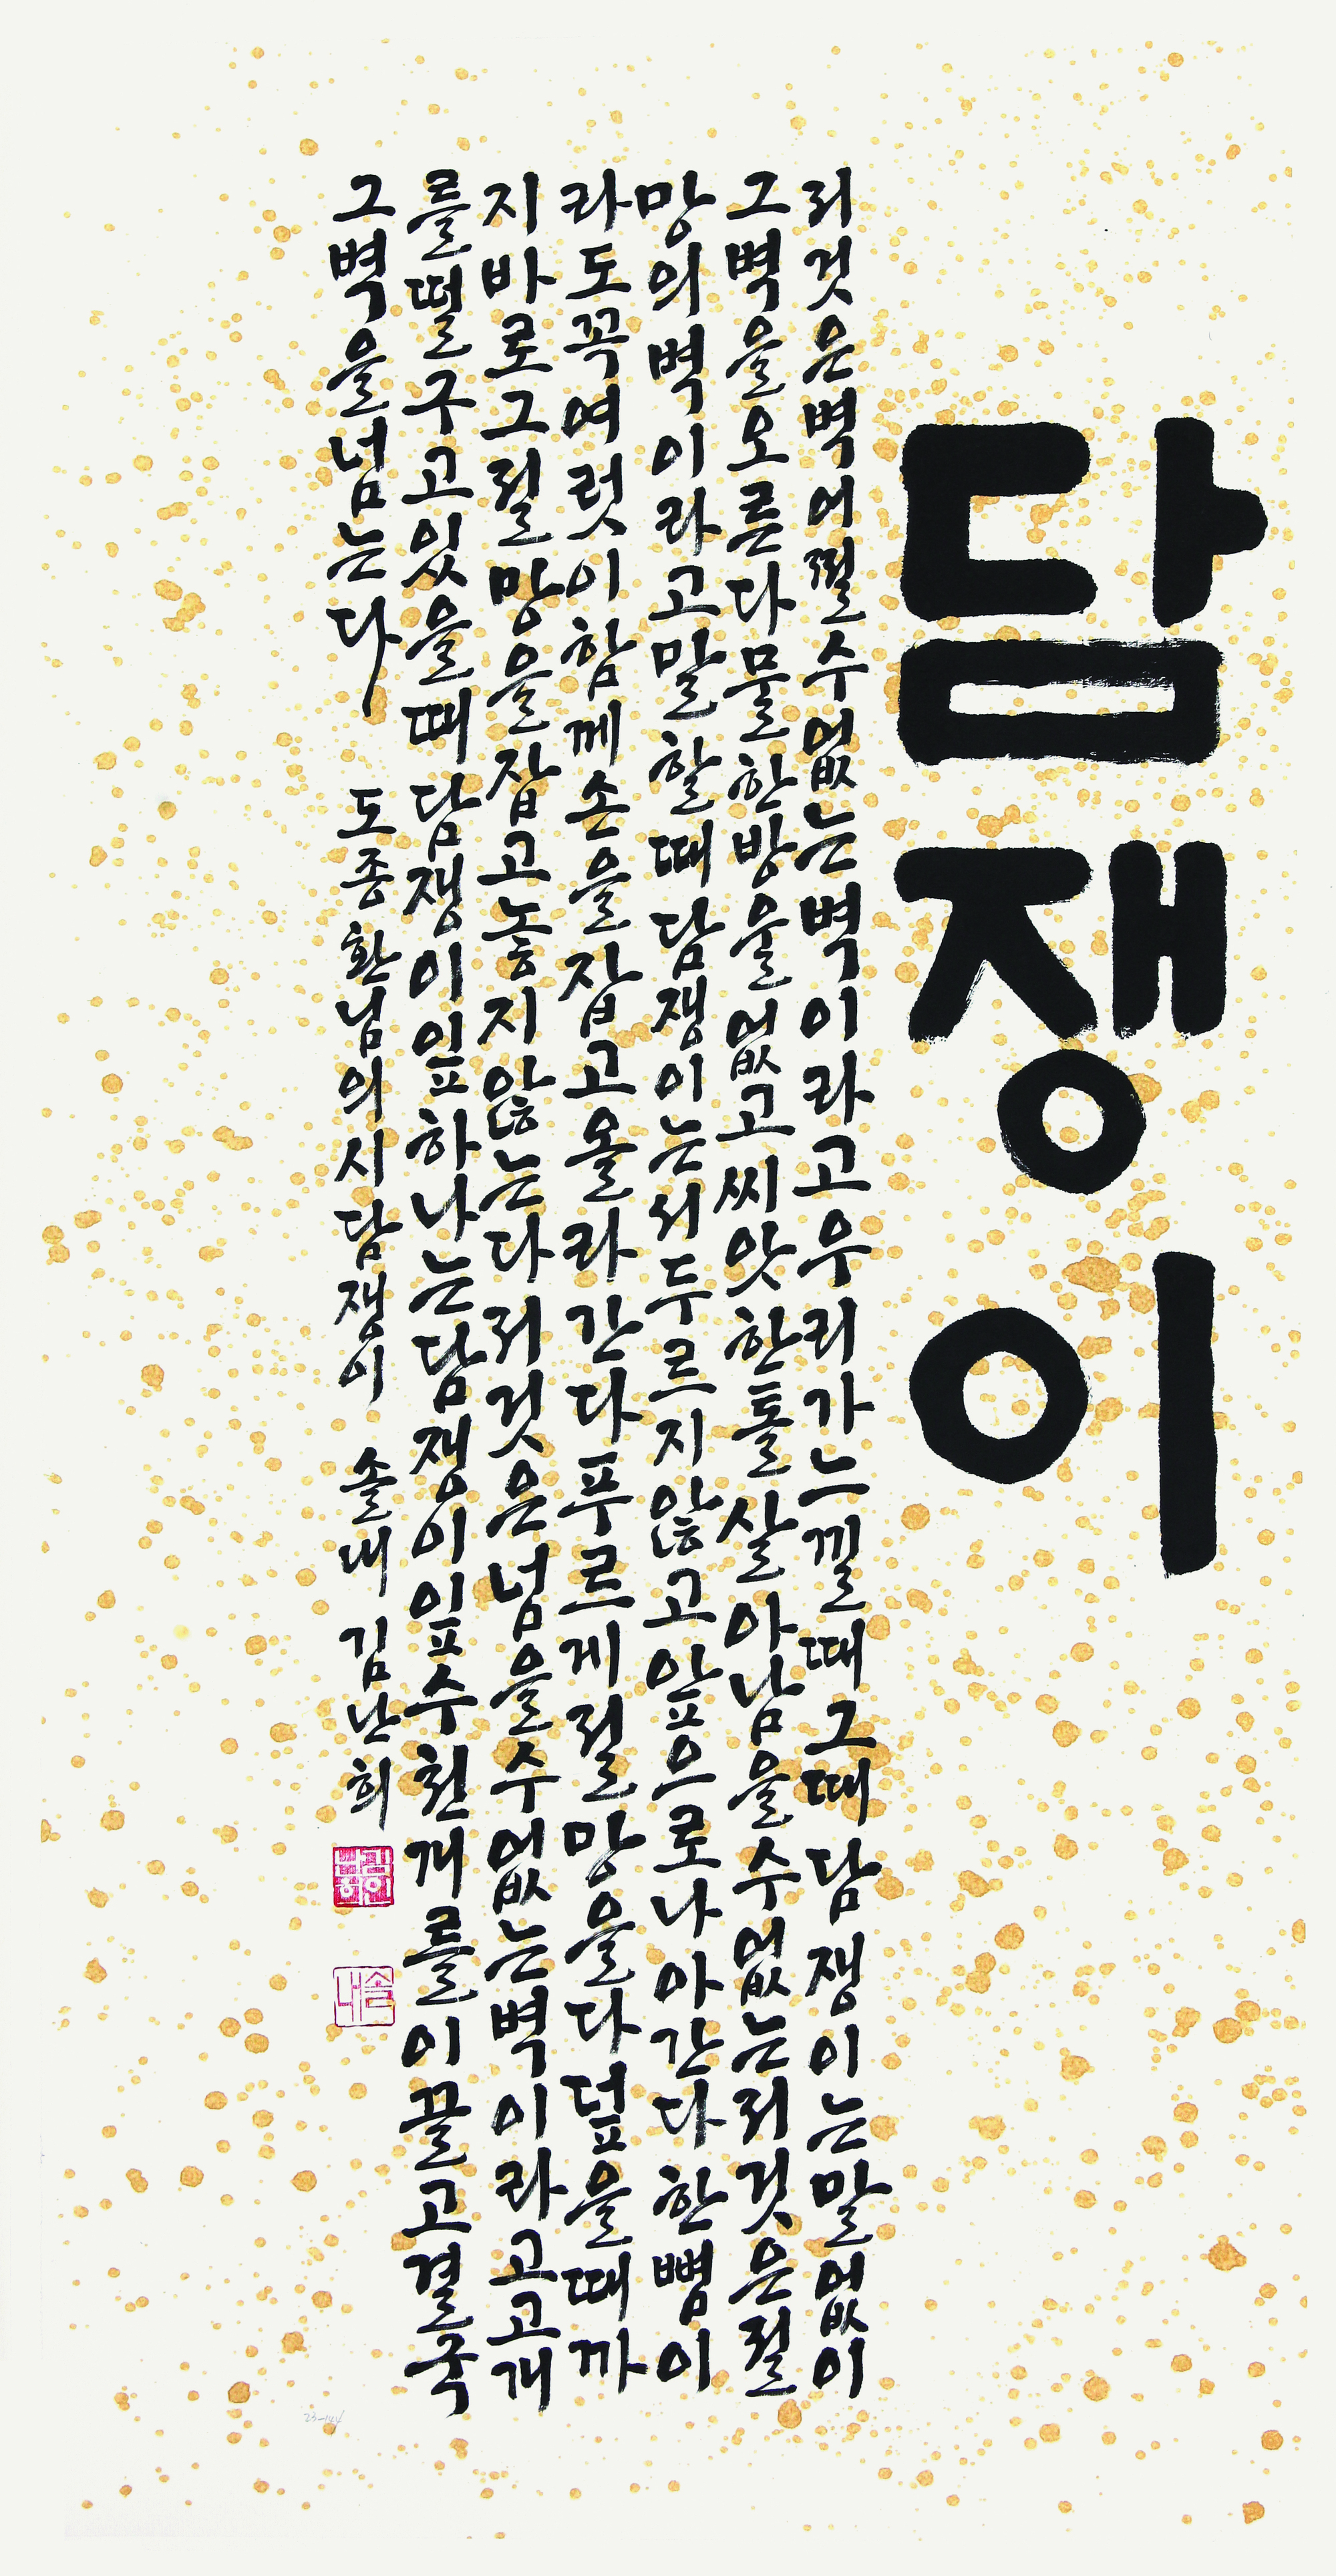 담쟁이
저것은벽어쩔수없는벽이라고우리가느낄때그때담쟁이는말없이
그벽을오른다물한방울없고씨앗한톨살아남을수없는저것은절
망의벽이라고말할때담쟁이는서두르지않고앞으로나아간다한뼘이
라도꼭여럿이함께손을잡고올라간다푸르게절망을다덮을때까
지바로그절망을잡고놓지않는다저것은넘을수없는벽이라고고개
를떨구고있을때담쟁이잎하나는담쟁이잎수천개를이끌고결국
그벽을넘는다 도종환님의시담쟁이 솔내 김난희
솔내
23-144